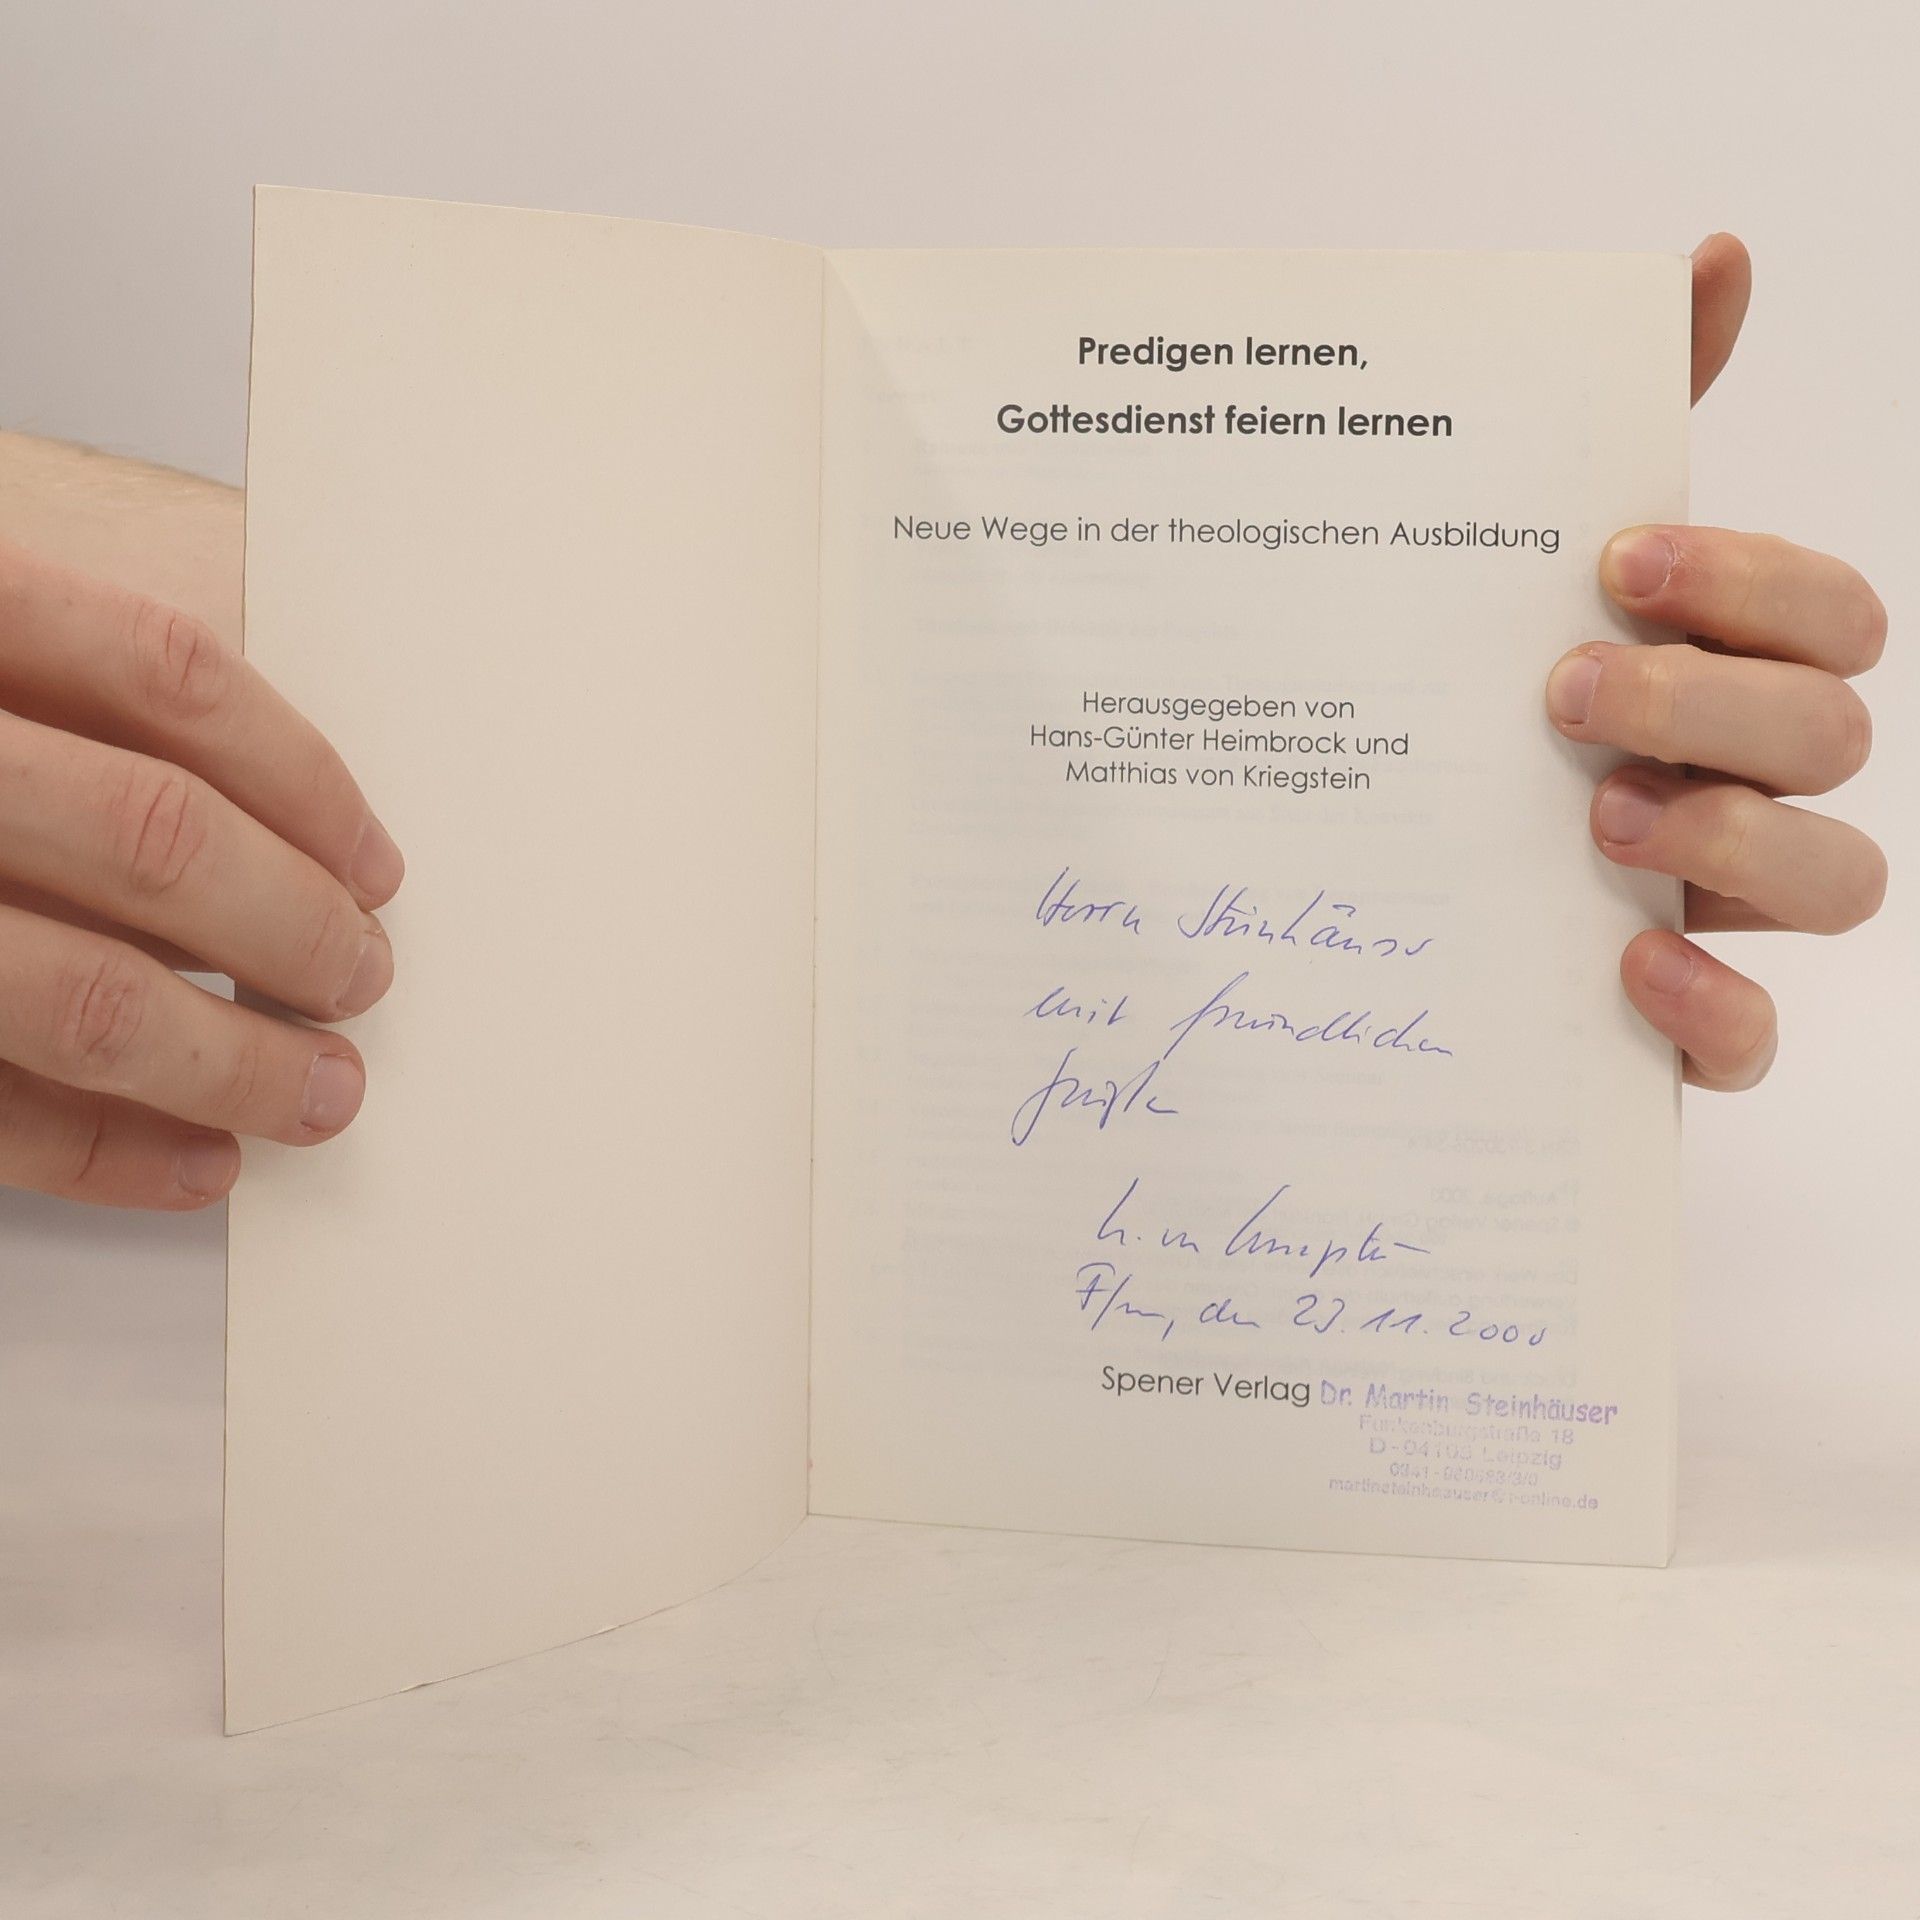 Predigen lernen,
Gottesdienst feiern lernen
Neue Wege in der theologischen Ausbildung
Herausgegeben von
Hans-Günter Heimbrock und
Matthias von Kriegstein
Herrn Steinhäuser
mit freundlichen
Grüßen
F/m, den 23.11.2000
Spener Verlag
Dr. Martin Steinhäuser
Funkenburgstraße 18
D-04105 Leipzig
martinsteinhaeuser@t-online.de